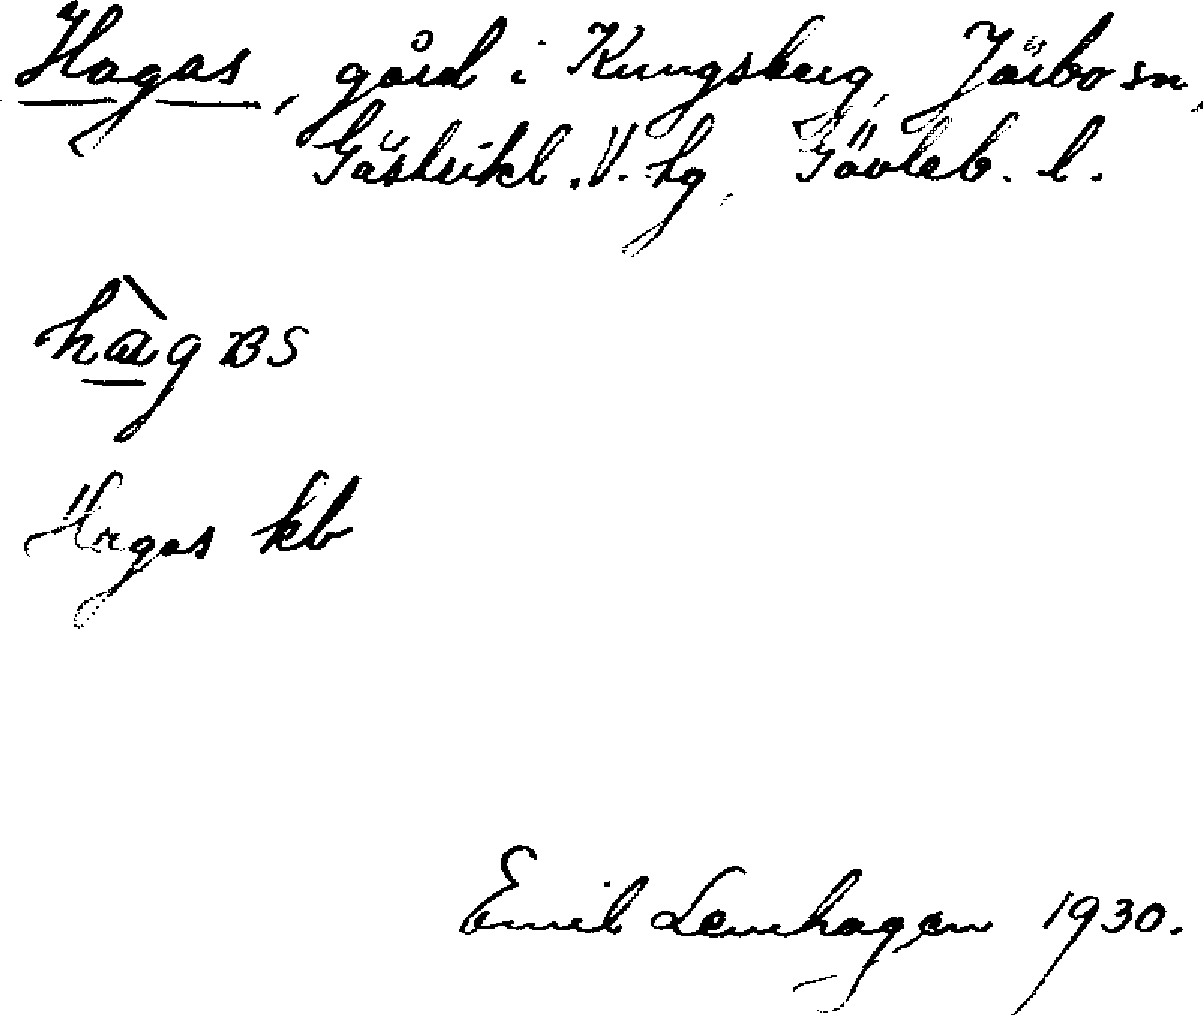 Hagas, gård i Kungsberg, Järbo sn,
Gästrikl. V. hg, Gävleb. l.
hâg BS
Hagas kb
Emil Lenhagen 1930.